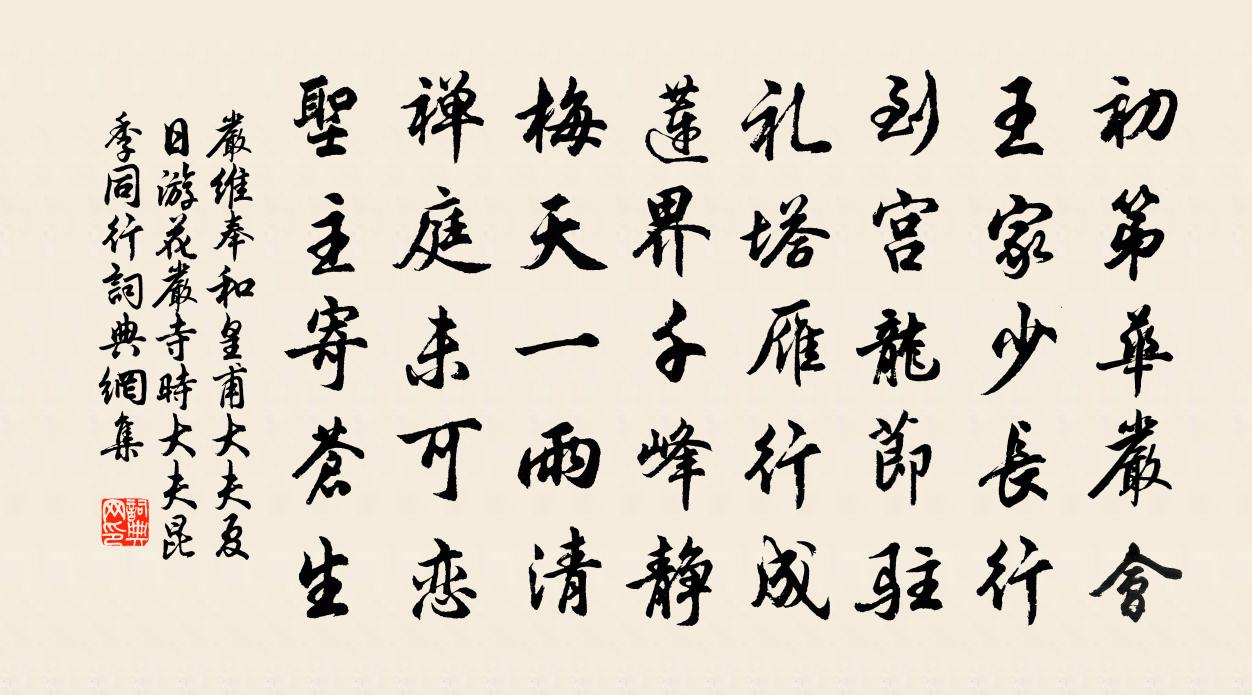 初第華嚴會
王家少長行
到宮龍節駐
礼塔雁行成
蓮界千峰静
梅天一雨清
禅庭未可恋
聖主寄蒼生
嚴維奉和皇甫大夫夏
日游花嚴寺時大夫昆
季同行詞典網集
詞典网印